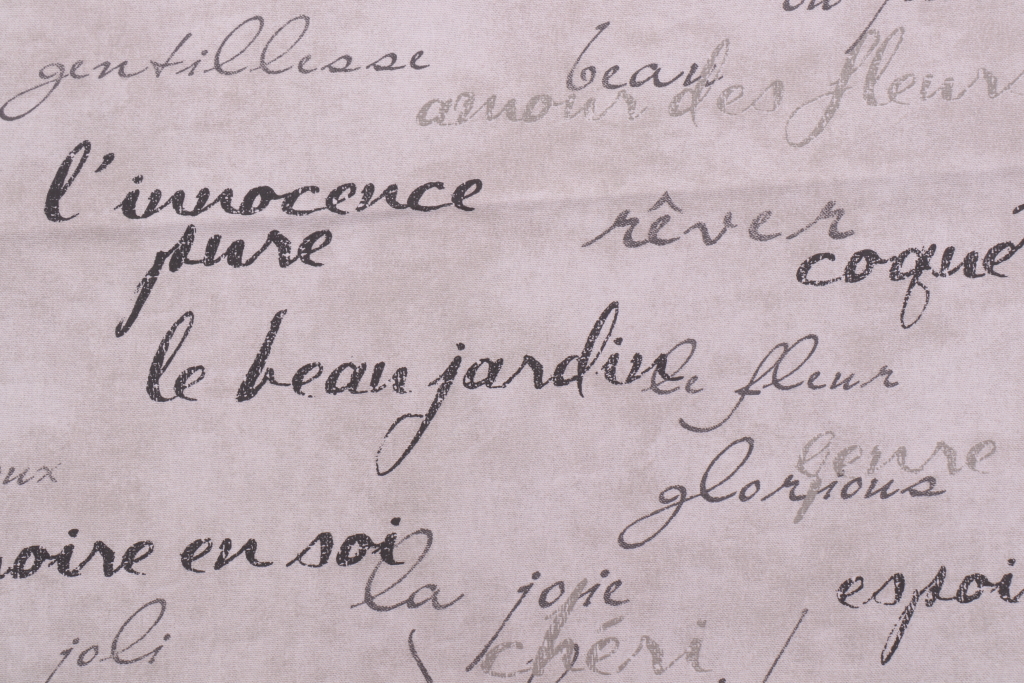 gentillesse
beau
amour des fleurs
l'innocence
pure
rêver
coque
le beau jardin
le fleur
genre
glorious
oire en soi
la joie
espoi
joli
chéri